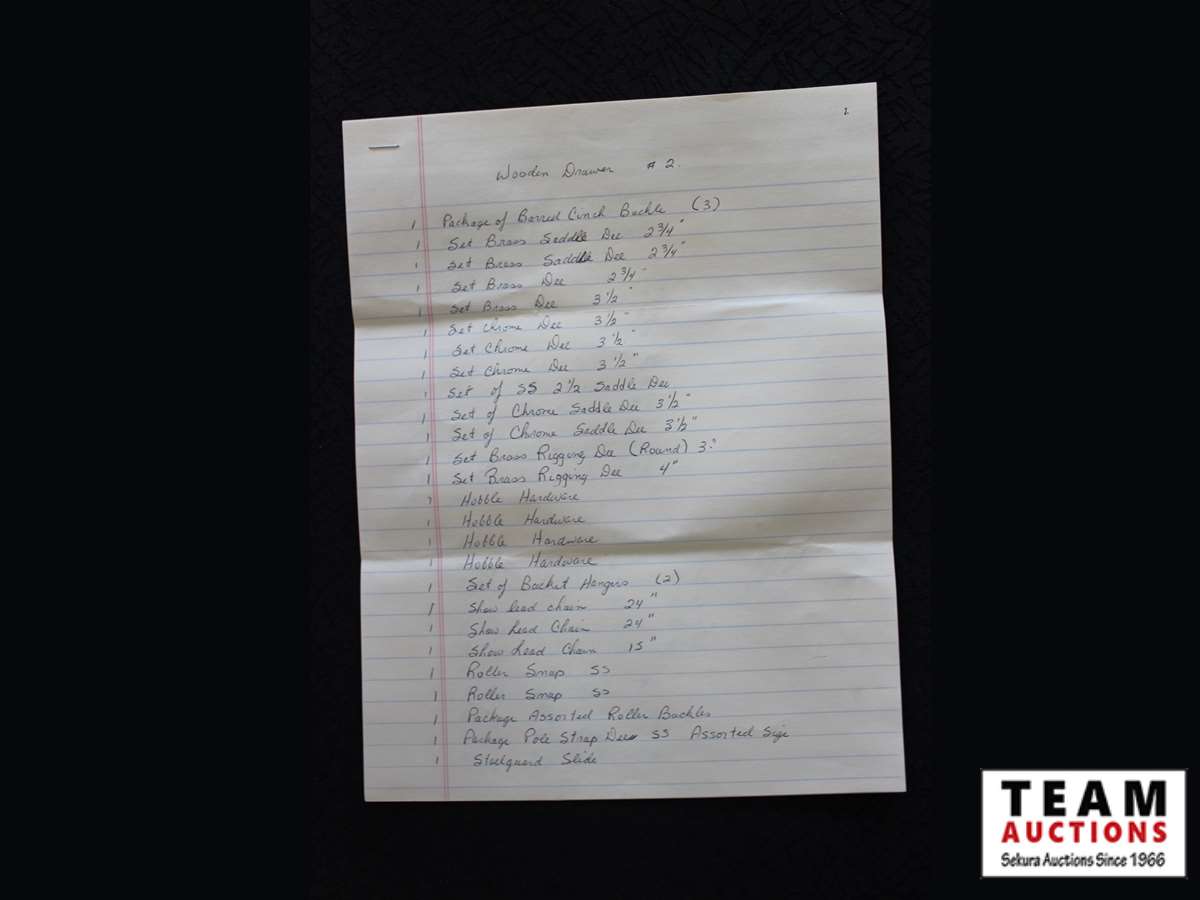 2
Wooden Drawer # 2.
1 Package of Barred Cinch Buckle (3)
1 Set Brass Saddle Dee 2 3/4"
1 Set Brass Saddle Dee 2 3/4"
1 Set Brass Dee 2 3/4"
1 Set Brass Dee 3 1/2"
1 Set Chrome Dee 3 1/2"
1 Set Chrome Dee 3 1/2"
1 Set Chrome Dee 3 1/2"
1 Set of SS 2 1/2 Saddle Dee
1 Set of Chrome Saddle Dee 3 1/2"
1 Set of Chrome Saddle Dee 3 1/2"
1 Set Brass Rigging Dee (Round) 3"
1 Set Brass Rigging Dee 4"
1 Hobble Hardware
1 Hobble Hardware
1 Hobble Hardware
1 Hobble Hardware
1 Set of Bucket Hangers (2)
1 Show lead chain 24"
1 Show Lead Chain 24"
1 Show Lead Chain 15"
1 Roller Snap SS
1 Roller Snap SS
1 Package Assorted Roller Buckles
1 Package Pole Strap Dees SS Assorted Size
1 Steelguard Slide
TEAM
AUCTIONS
Sekura Auctions Since 1966